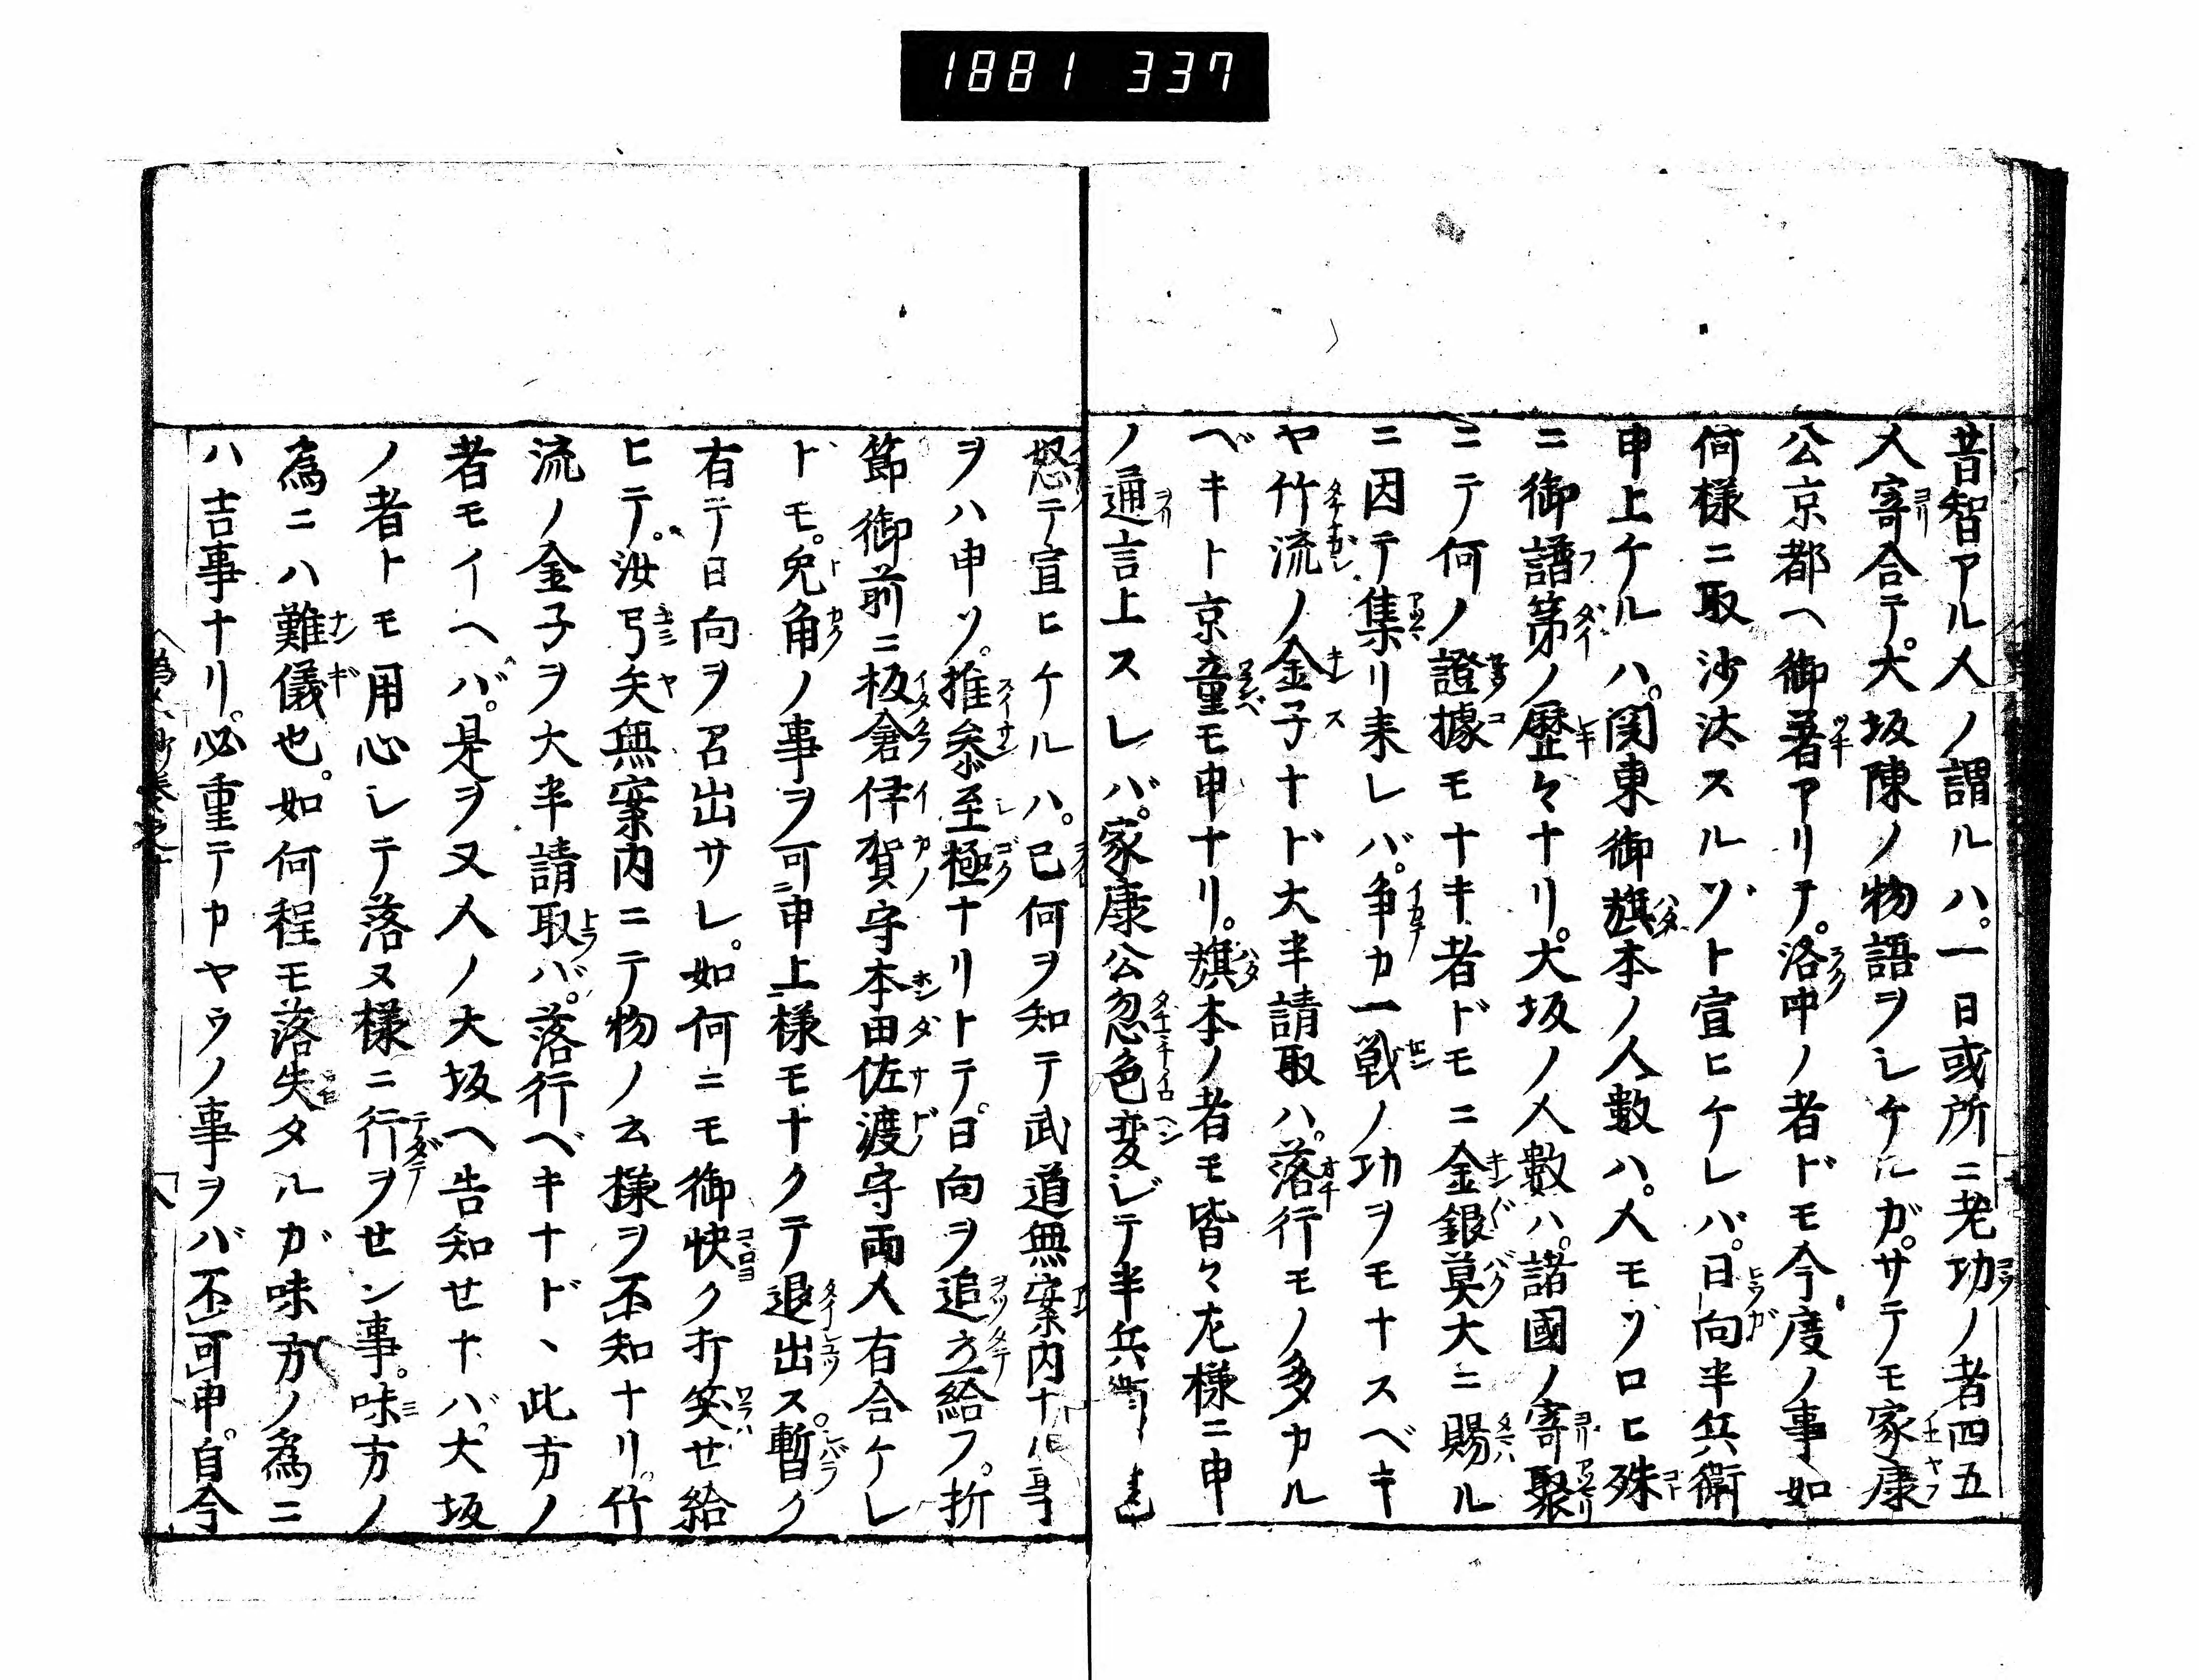 1881 337
昔智アル人ノ謂ルハ。一日或所ニ老功ノ者四五
人寄合テ。大坂陳ノ物語ヲシケルガ。サテモ家康
公京都ヘ御著アリテ。洛中ノ者ドモ今度ノ事如
何様ニ取沙汰スルゾト宣ヒケレバ。日向半兵衛
申上ケルハ。関東御旗本ノ人数ハ。人モソロヒ殊
ニ御譜第ノ歴々ナリ。大坂ノ人數ハ。諸國ノ寄聚
ニテ何ノ證據モナキ者ドモニ金銀莫大ニ賜ル
ニ因テ集リ来レバ。争カ一戦ノ功ヲモナスベキ
ヤ竹流ノ金子ナド大半請取ハ。落行モノ多カル
ベキト京童モ申ナリ。旗本ノ者モ皆々左様ニ申
ノ通言上スレバ。家康公忽色変ジテ半兵衛
怒テ宣ヒケルハ。己何ヲ知テ武道無案内ナル事
ヲハ申ソ。推参至極ナリトテ。日向ヲ追立給フ。折
節御前ニ板倉伊賀守本田佐渡守両人右合ケレ
ドモ。免角ノ事ヲ可申上様モナクテ退出ス。暫ク
有テ日向ヲ召出サレ。如何ニモ御快ク打笑セ給
ヒテ。汝弓矢無案内ニテ物ノ云様ヲ不知ナリ。竹
流ノ金子ヲ大半請取バ。落行ベキナド、此方ノ
者モイヘバ。是ヲ又人ノ大坂ヘ告知セナバ。大坂
ノ者トモ用心シテ落ヌ様ニ行ヲセン事。味方ノ
為ニハ難儀也。如何程モ落失タルガ味方ノ為ニ
ハ吉事ナリ。必重テカヤウノ事ヲバ不可申。自今